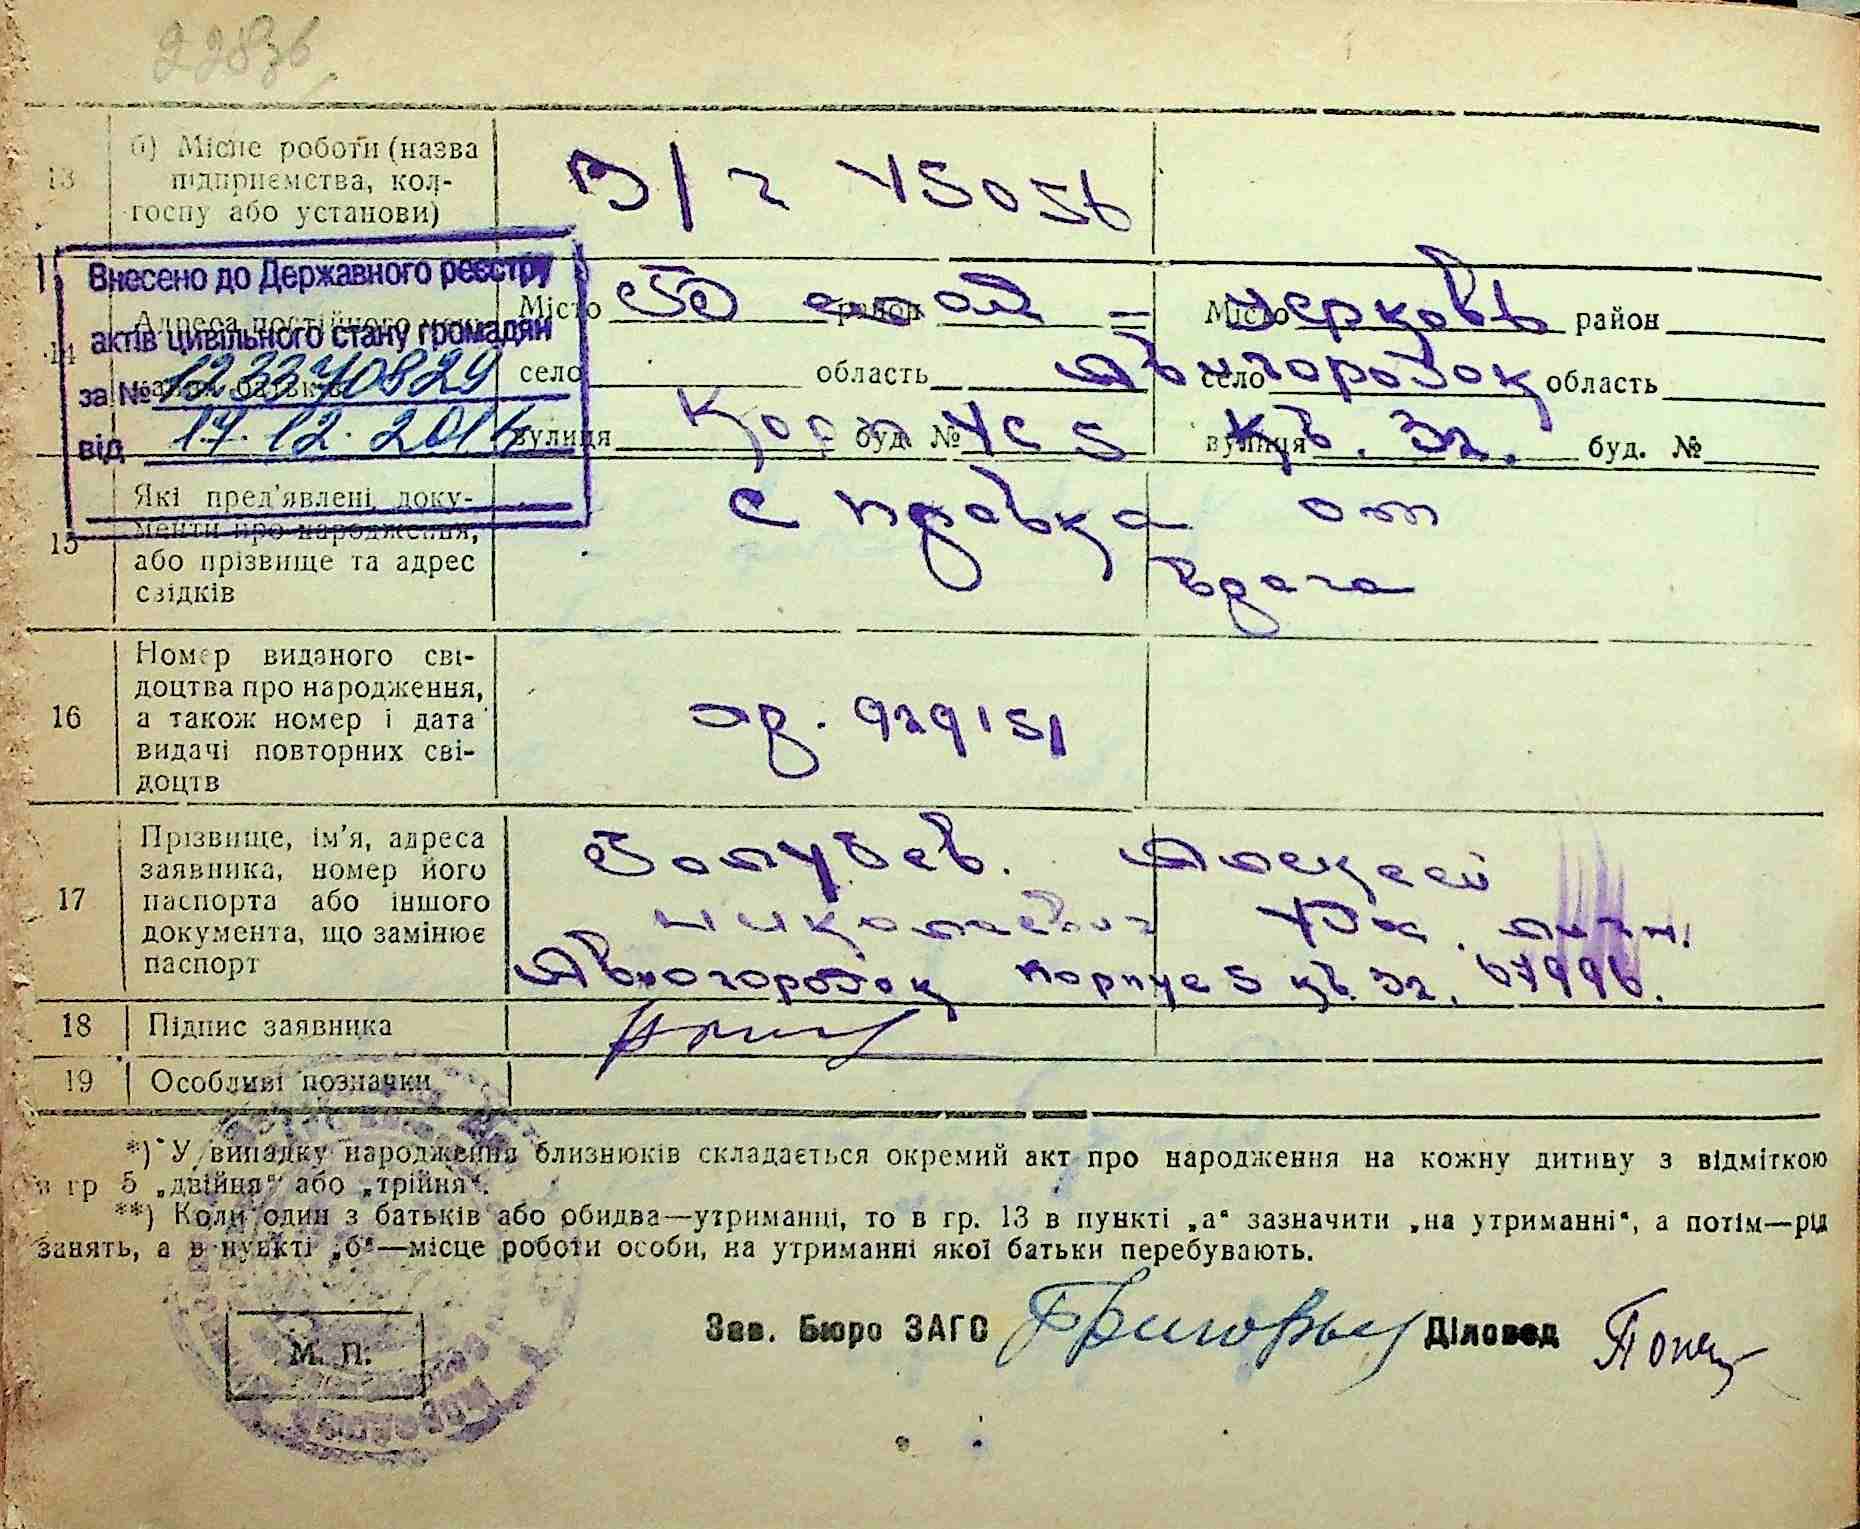 22836
13 б) Місце роботи (назва підприємства, кол-
госпу або установи)
В/ч 45056
Внесено до Державного реєстру
актів цивільного стану громадян
за № 1233740829
від 17.12.2016
14 Адреса постійного
Місто Белая район – село область вулиця Корпус 5 буд. №
Місто Церковь район село Авиогородок область вулиця кв. 32. буд. №
15 Які пред'явлені доку-
менти про народження,
або прізвище та адрес
свідків
Справка от
врача
16 Номер виданого сві-
доцтва про народження,
а також номер і дата
видачі повторних сві-
доцтв
929151
17 Прізвище, ім'я, адреса
заявника, номер його
паспорта або іншого
документа, що замінює
паспорт
Голубев. Алексей
Николаевич Уд. личн.
Авиогородок корпус 5 кв. 32.
18 Підпис заявника
19 Особливі позначки
*) У випадку народження близнюків складається окремий акт про народження на кожну дитину з відміткою
в гр 5 „двійня“ або „трійня“.
**) Коли один з батьків або обидва—утриманці, то в гр. 13 в пункті „а“ зазначити „на утриманні“, а потім—рід
занять, а в пункті „б“—місце роботи особи, на утриманні якої батьки перебувають.
Зав. Бюро ЗАГС Діловод
М. П.